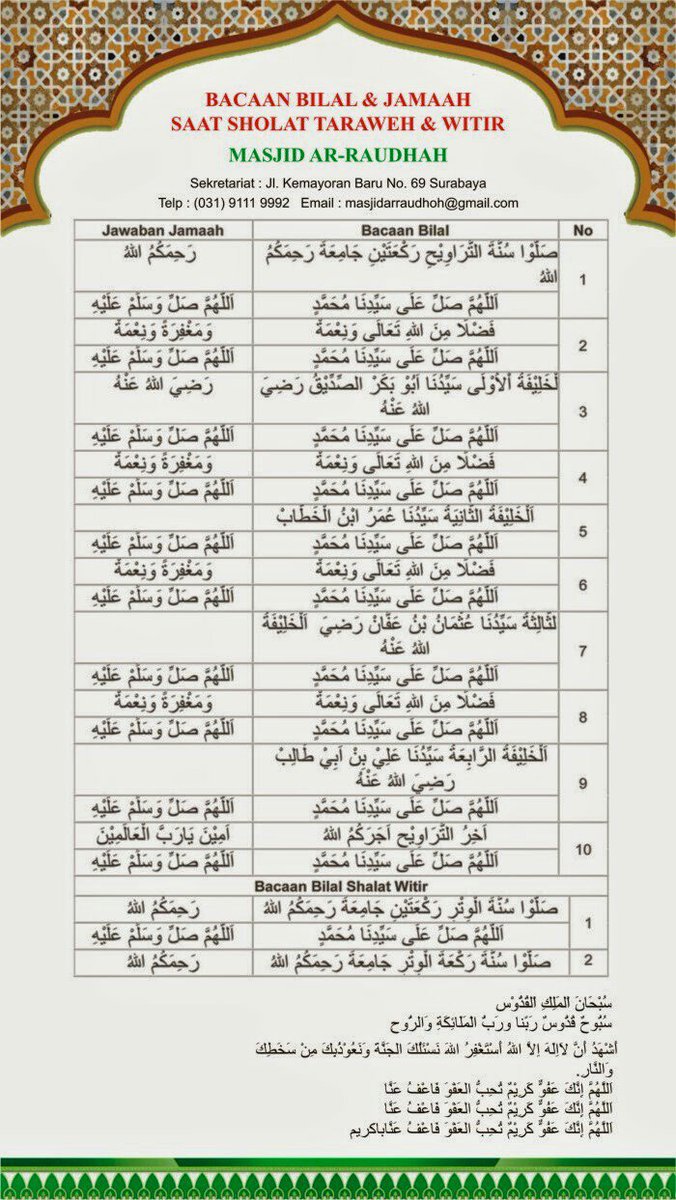 BACAAN BILAL & JAMAAH
SAAT SHOLAT TARAWEH & WITIR
MASJID AR-RAUDHAH
Sekretariat : Jl. Kemayoran Baru No. 69 Surabaya
Telp : (031) 9111 9992 Email : masjidarraudhoh@gmail.com
No Bacaan Bilal Jawaban Jamaah
1 صَلُّوْا سُنَّةَ التَّرَاوِيْحِ رَكْعَتَيْنِ جَامِعَةَ رَحِمَكُمُ رَحِمَكُمُ اللهُ
اللهُ
اَللّٰهُمَّ صَلِّ عَلَى سَيِّدِنَا مُحَمَّدٍ اَللّٰهُمَّ صَلِّ وَسَلِّمْ عَلَيْهِ
2 فَضْلًا مِنَ اللهِ تَعَالَى وَنِعْمَةً وَمَغْفِرَةً وَنِعْمَةً
اَللّٰهُمَّ صَلِّ عَلَى سَيِّدِنَا مُحَمَّدٍ اَللّٰهُمَّ صَلِّ وَسَلِّمْ عَلَيْهِ
3 لْخَلِيْفَةُ اْلأَوْلَى سَيِّدُنَا اَبُوْ بَكَرْ الصِّدِّيْقُ رَضِيَ رَضِيَ اللهُ عَنْهُ
اللهُ عَنْهُ
اَللّٰهُمَّ صَلِّ عَلَى سَيِّدِنَا مُحَمَّدٍ اَللّٰهُمَّ صَلِّ وَسَلِّمْ عَلَيْهِ
4 فَضْلًا مِنَ اللهِ تَعَالَى وَنِعْمَةً وَمَغْفِرَةً وَنِعْمَةً
اَللّٰهُمَّ صَلِّ عَلَى سَيِّدِنَا مُحَمَّدٍ اَللّٰهُمَّ صَلِّ وَسَلِّمْ عَلَيْهِ
5 اَلْخَلِيْفَةُ الثَّانِيَةُ سَيِّدُنَا عُمَرُ ابْنُ الْخَطَّابْ
اَللّٰهُمَّ صَلِّ عَلَى سَيِّدِنَا مُحَمَّدٍ اَللّٰهُمَّ صَلِّ وَسَلِّمْ عَلَيْهِ
6 فَضْلًا مِنَ اللهِ تَعَالَى وَنِعْمَةً وَمَغْفِرَةً وَنِعْمَةً
اَللّٰهُمَّ صَلِّ عَلَى سَيِّدِنَا مُحَمَّدٍ اَللّٰهُمَّ صَلِّ وَسَلِّمْ عَلَيْهِ
7 لثَّالِثَةُ سَيِّدُنَا عُثْمَانُ بْنُ عَفَّانْ رَضِيَ اَلْخَلِيْفَةُ
اللهُ عَنْهُ
اَللّٰهُمَّ صَلِّ عَلَى سَيِّدِنَا مُحَمَّدٍ اَللّٰهُمَّ صَلِّ وَسَلِّمْ عَلَيْهِ
8 فَضْلًا مِنَ اللهِ تَعَالَى وَنِعْمَةً وَمَغْفِرَةً وَنِعْمَةً
اَللّٰهُمَّ صَلِّ عَلَى سَيِّدِنَا مُحَمَّدٍ اَللّٰهُمَّ صَلِّ وَسَلِّمْ عَلَيْهِ
9 اَلْخَلِيْفَةُ الرَّابِعَةُ سَيِّدُنَا عَلِيْ بِنْ اَبِيْ طَالِبْ
رَضِيَ اللهُ عَنْهُ
اَللّٰهُمَّ صَلِّ عَلَى سَيِّدِنَا مُحَمَّدٍ اَللّٰهُمَّ صَلِّ وَسَلِّمْ عَلَيْهِ
10 اَخِرُ التَّرَاوِيْحِ اَجَرَكُمُ اللهُ اَمِيْنَ يَارَبَّ الْعَالَمِيْنَ
اَللّٰهُمَّ صَلِّ عَلَى سَيِّدِنَا مُحَمَّدٍ اَللّٰهُمَّ صَلِّ وَسَلِّمْ عَلَيْهِ
Bacaan Bilal Shalat Witir
1 صَلُّوْا سُنَّةَ الْوِتْرِ رَكْعَتَيْنِ جَامِعَةَ رَحِمَكُمُ اللهُ رَحِمَكُمُ اللهُ
اَللّٰهُمَّ صَلِّ عَلَى سَيِّدِنَا مُحَمَّدٍ اَللّٰهُمَّ صَلِّ وَسَلِّمْ عَلَيْهِ
2 صَلُّوْا سُنَّةَ رَكْعَةَ الْوِتْرِ جَامِعَةَ رَحِمَكُمُ اللهُ رَحِمَكُمُ اللهُ
سُبْحَانَ الْمَلِكِ الْقُدُّوْسِ
سُبُّوحٌ قُدُّوسٌ رَبُّنَا وَرَبُّ الْمَلَائِكَةِ وَالرُّوحِ
أَشْهَدُ أَنْ لَاإِلَهَ إِلاَّ اللهُ أَسْتَغْفِرُ اللهَ نَسْئَلُكَ الجَنَّةَ وَنَعُوْذُبِكَ مِنْ سَخَطِكَ
وَالنَّارِ.
اَللَّهُمَّ إِنَّكَ عَفُوٌّ كَرِيْمٌ تُحِبُّ الْعَفْوَ فَاعْفُ عَنَّا
اَللَّهُمَّ إِنَّكَ عَفُوٌّ كَرِيْمٌ تُحِبُّ الْعَفْوَ فَاعْفُ عَنَّا
اَللَّهُمَّ إِنَّكَ عَفُوٌّ كَرِيْمٌ تُحِبُّ الْعَفْوَ فَاعْفُ عَنَّاياكريم